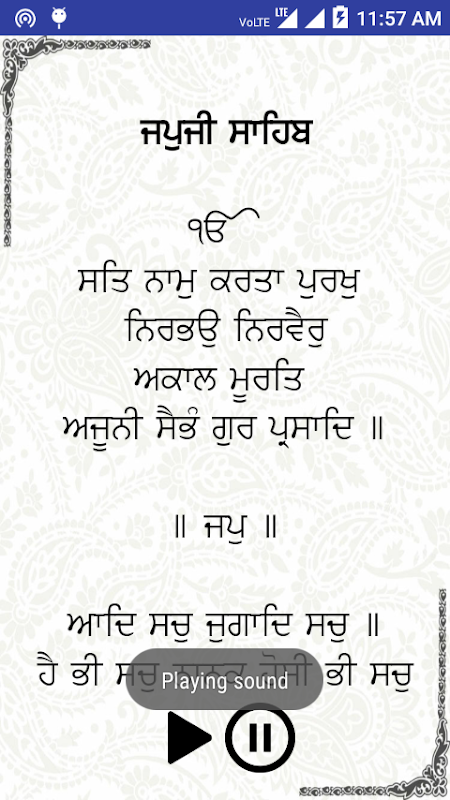 VoLTE LTE 11:57 AM
ਜਪੁਜੀ ਸਾਹਿਬ
ੴ
ਸਤਿ ਨਾਮੁ ਕਰਤਾ ਪੁਰਖੁ
ਨਿਰਭਉ ਨਿਰਵੈਰੁ
ਅਕਾਲ ਮੂਰਤਿ
ਅਜੂਨੀ ਸੈਭੰ ਗੁਰ ਪ੍ਰਸਾਦਿ ॥
॥ ਜਪੁ ॥
ਆਦਿ ਸਚੁ ਜੁਗਾਦਿ ਸਚੁ ॥
ਹੈ ਭੀ ਸਚੁ ਭੀ ਸਚੁ
Playing sound